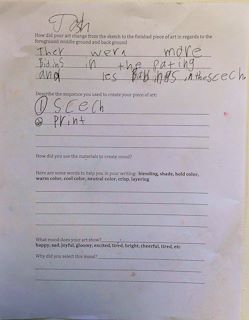 Josh
How did your art change from the sketch to the finished piece of art in regards to the
foreground middle ground and back ground
Ther wern more
Bidins in the pating
and les Baldings in the scech.
Describe the sequence you used to create your piece of art:
① scech
② print
How did you use the materials to create mood?
Here are some words to help you in your writing: blending, shade, bold color,
warm color, cool color, neutral color, crisp, layering
What mood does your art show?
happy, sad, joyful, gloomy, excited, tired, bright, cheerful, tired, etc
Why did you select this mood?